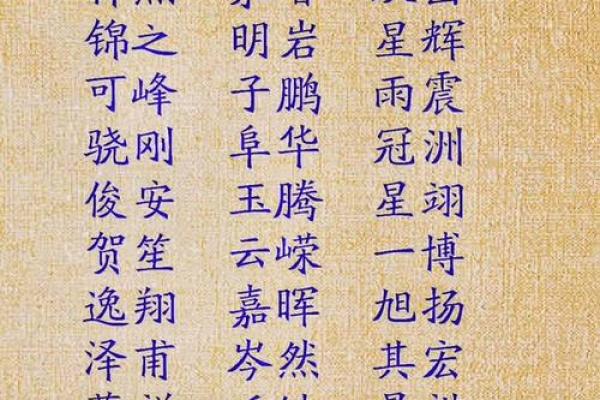 锦之 明岩 星辉
可峰 子鹏 雨震
骁刚 阜华 冠洲
俊安 玉腾 星翊
贺笙 云嵘 一博
逸翔 嘉晖 旭扬
泽甫 岑然 其宏